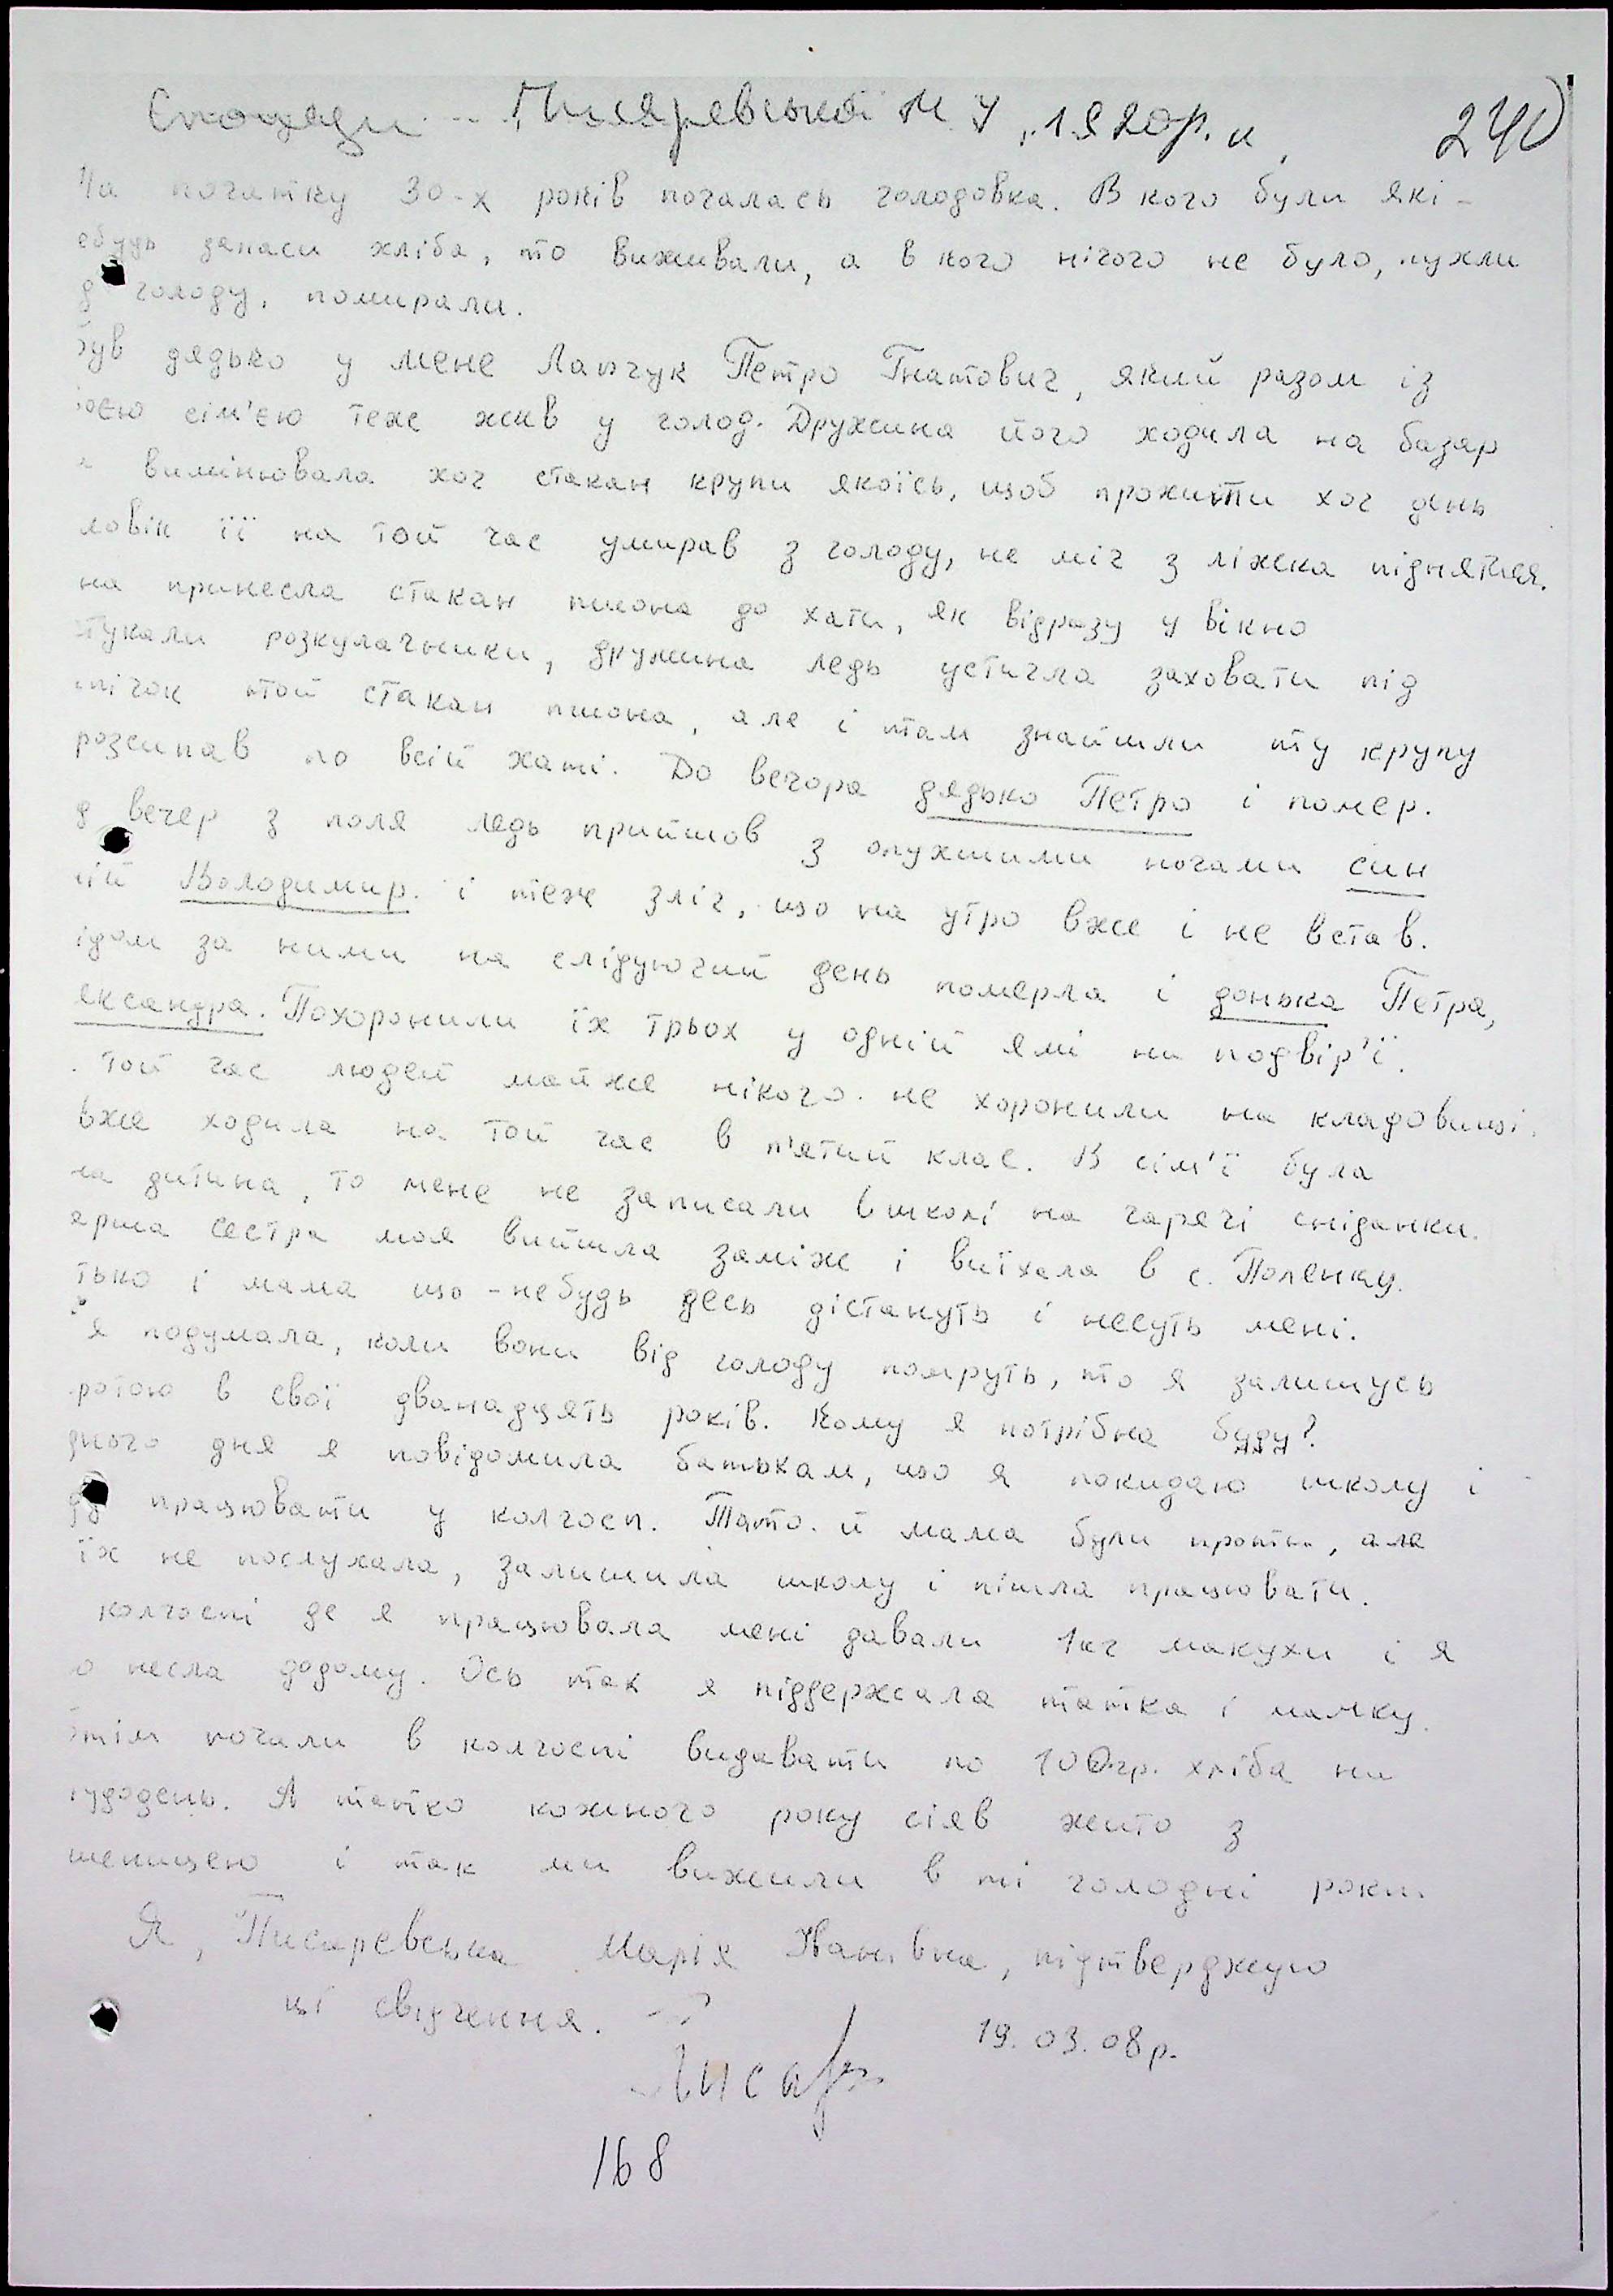 Спогади Писаревської М. І, 1920р. н. 240
На початку 30-х років почалась голодовка. В кого були які-
ебудь запаси хліба, то виживали, а в кого нічого не було, пухли
д голоду, помирали.
був дядько у мене Лапчук Петро Гнатович, який разом із
оєю сім'єю теж жив у голод. Дружина його ходила на базар
вимінювала хоч стакан крупи якоїсь, щоб прожити хоч день
ловік її на той час умирав з голоду, не міг з ліжка піднятися.
на принесла стакан пшона до хати, як відразу у вікно
тукали розкулачники, дружина ледь устигла заховати під
пічок той стакан пшона, але і там знайшли ту крупу
розсипав по всій хаті. До вечора дядько Петро і помер.
д вечер з поля ледь прийшов з опухшими ногами син
ій Володимир. і теж зліг, що на утро вже і не встав.
ідом за ними на слідуючий день померла і донька Петра,
ександра. Похоронили їх трьох у одній ямі на подвір'ї.
той час людей майже нікого не хоронили на кладовищі.
вже ходила на той час в п'ятий клас. В сім'ї була
на дитина, то мене не записали в школі на гарячі сніданки.
арша сестра моя вийшла заміж і виїхала в с. Поленку.
тько і мама що-небудь десь дістануть і несуть мені.
я подумала, коли вони від голоду помруть, то я залишусь
ротою в свої дванадцять років. Кому я потрібна буду?
дного дня я повідомила батькам, що я покидаю школу і
ду працювати у колгосп. Тато й мама були проти, але
їх не послухала, залишила школу і пішла працювати.
колгоспі де я працювала мені давали 1кг макухи і я
о несла додому. Ось так я піддержала татка і мамку.
отім почали в колгоспі видавати по 100гр. хліба на
рудодень. А татко кожного року сіяв жито з
шеницею і так ми вижили в ті голодні роки.
Я, Писаревська Марія Іванівна, підтверджую
ці свідчення.
Писар
19.03.08р.
168